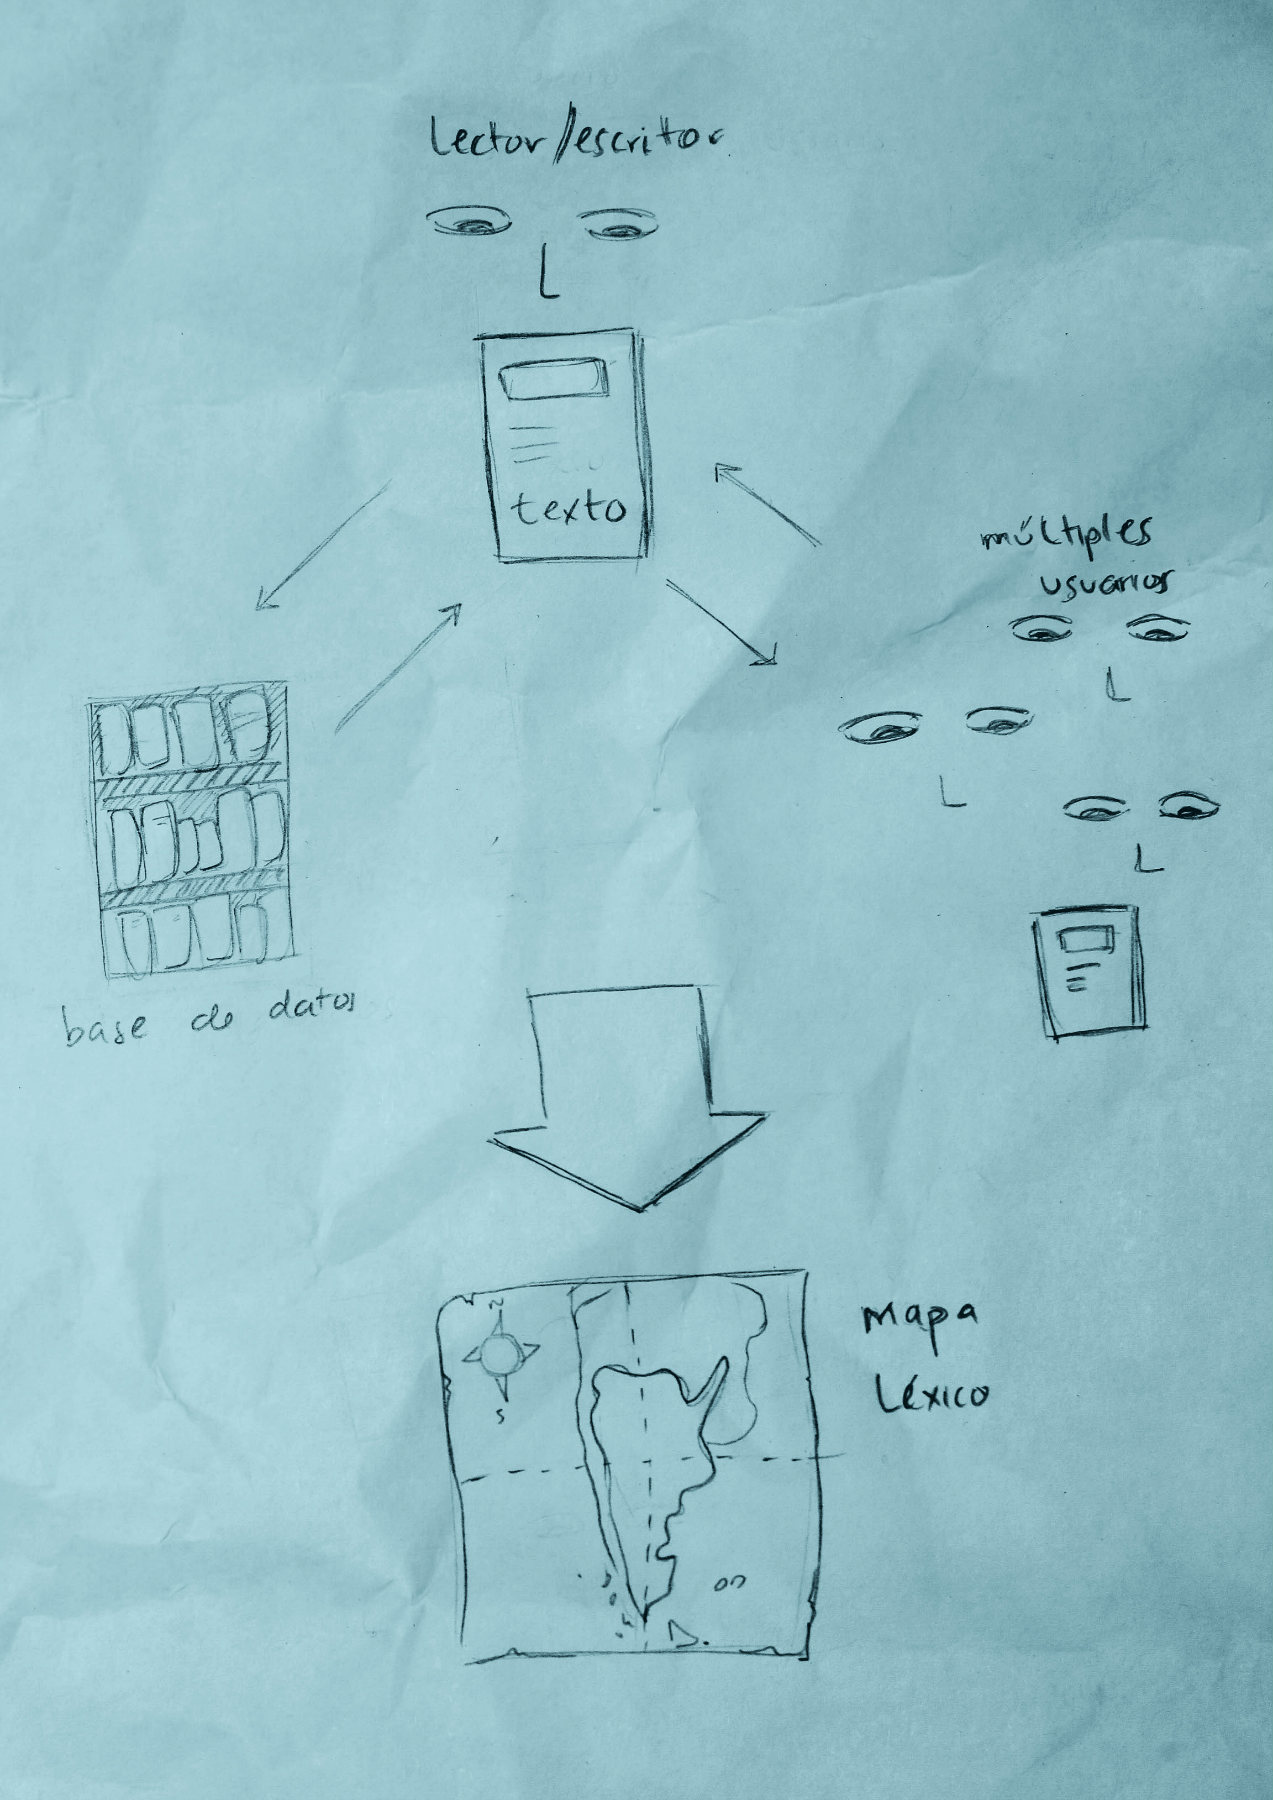 Lector/escritor
texto
múltiples
usuarios
base de datos
N
S
mapa
Léxico